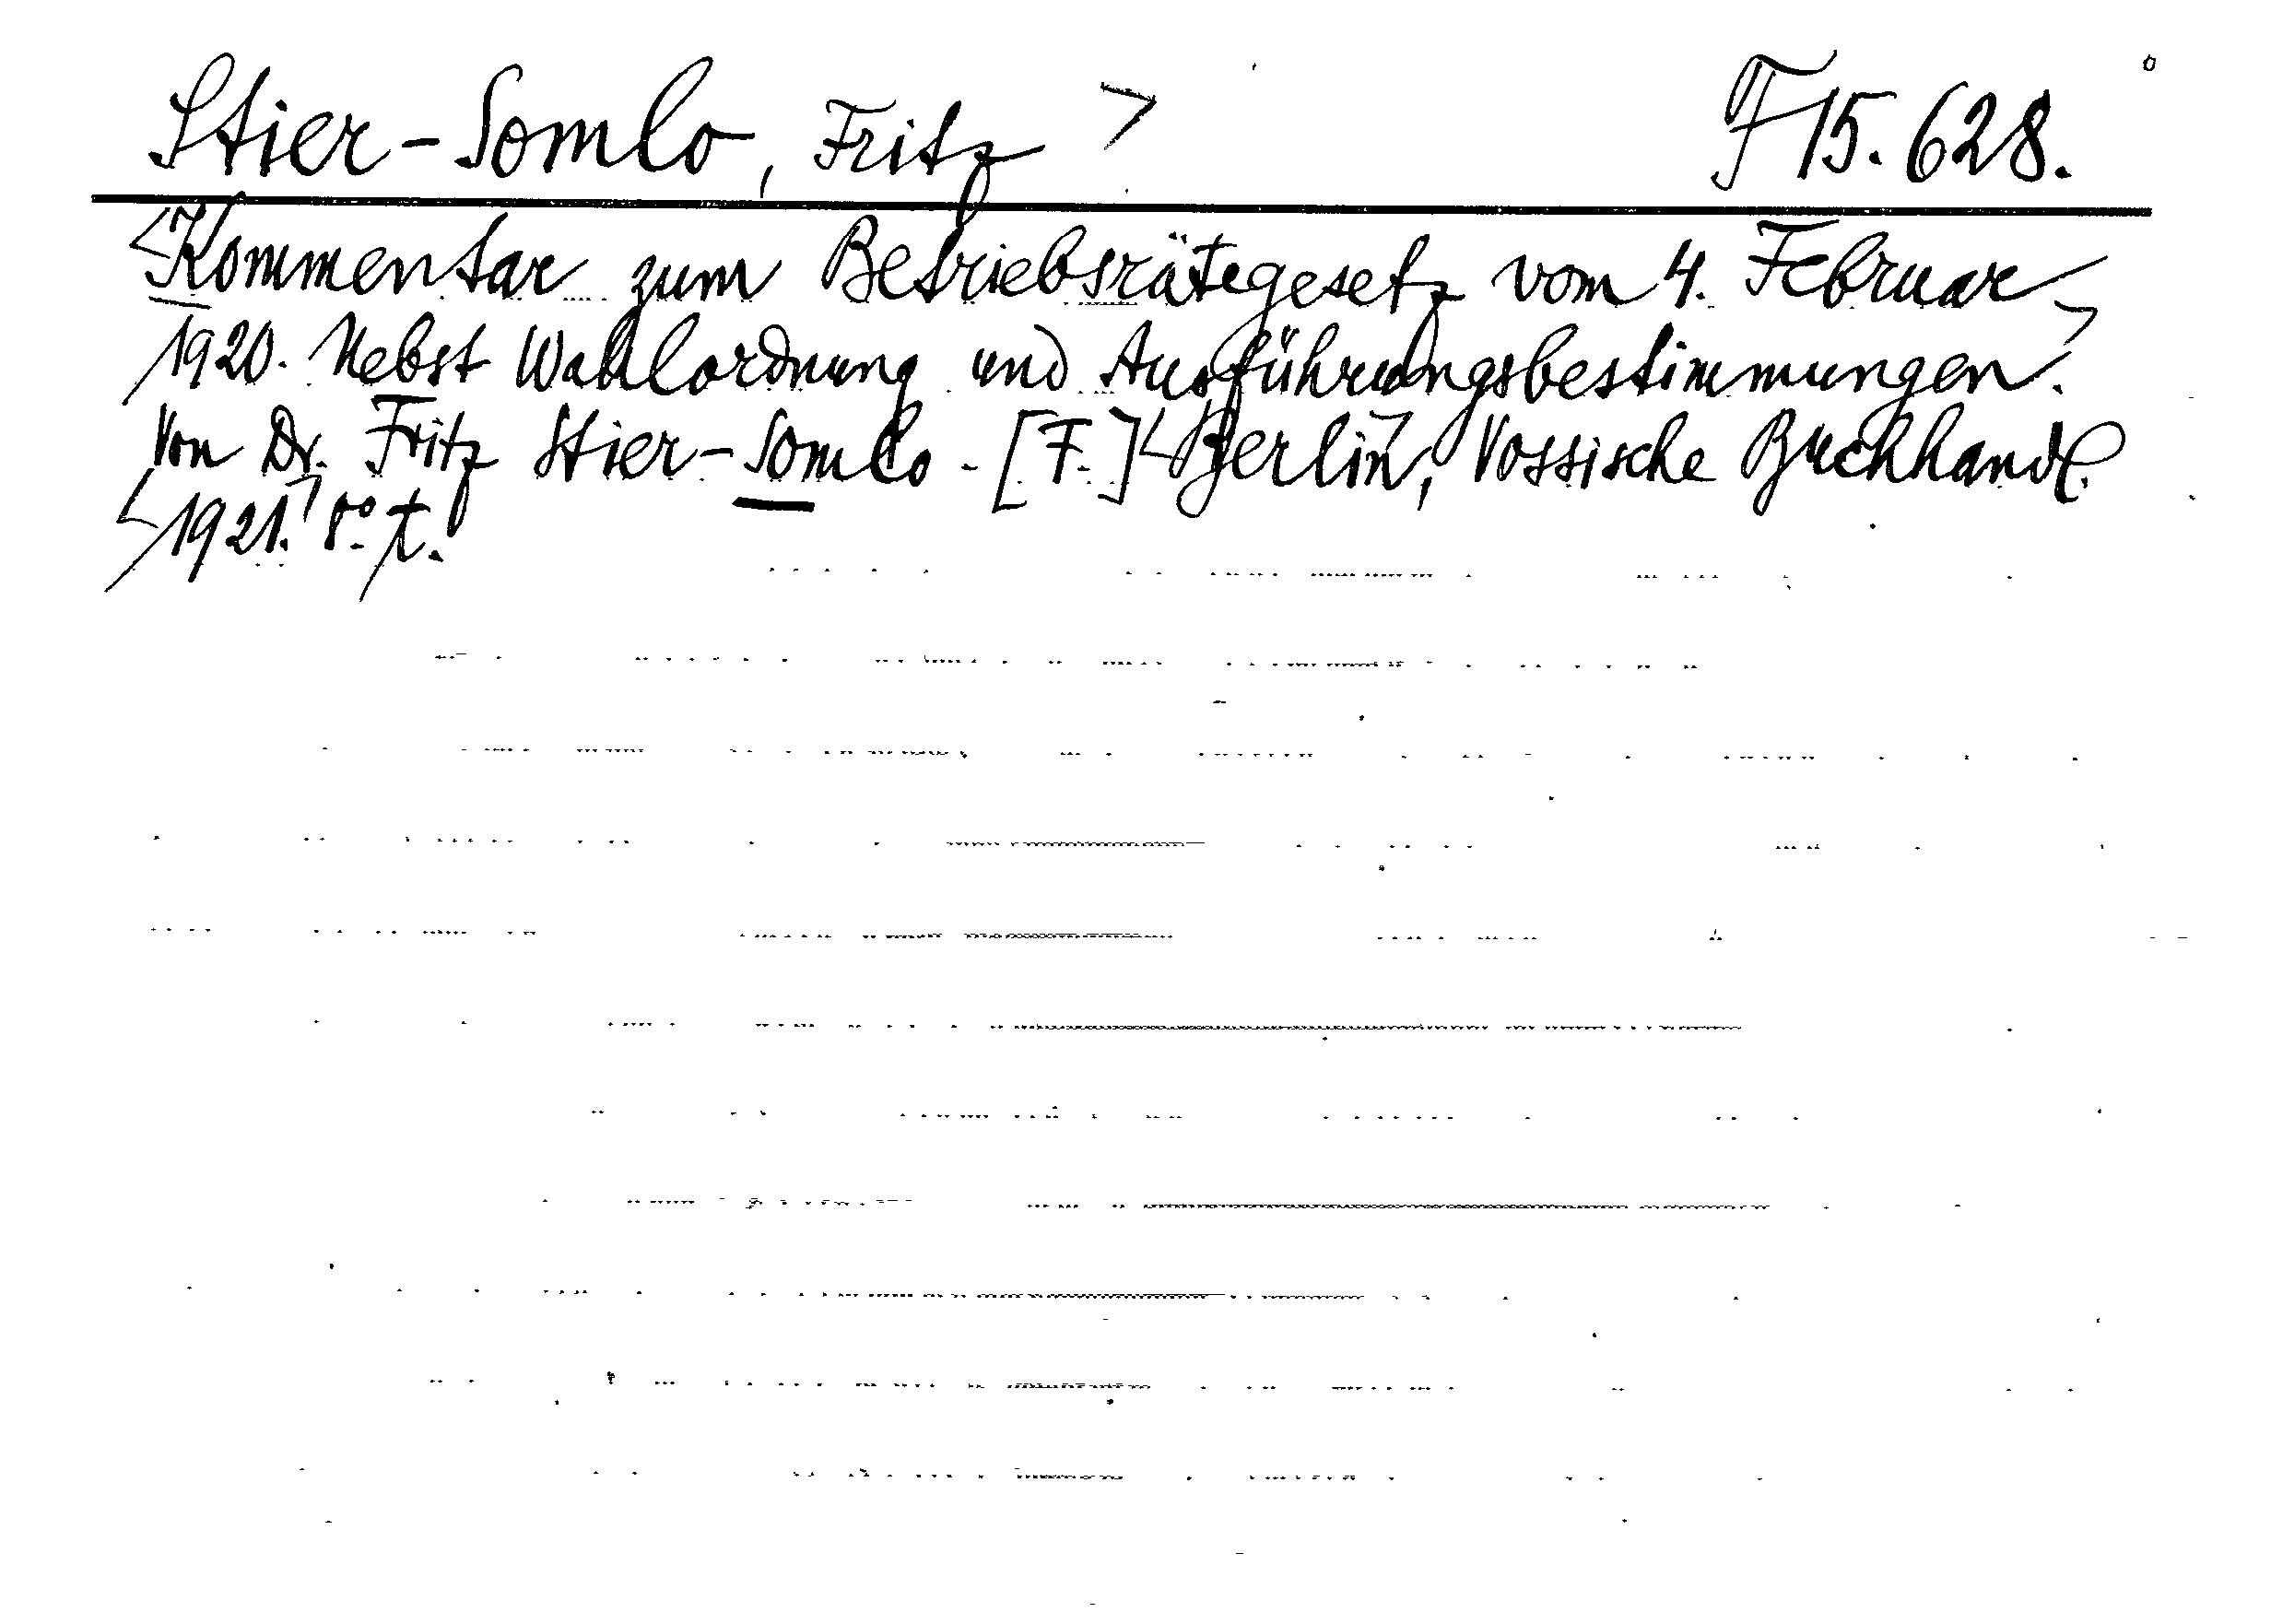 Stier-Somlo, Fritz F 15.628.
Kommentar zum Betriebsrätegesetz vom 4. Februar
1920. Nebst Wahlordnung und Ausführungsbestimmungen.
Von Dr. Fritz Stier-Somlo. [F.] Berlin, Vossische Buchhandl.
1921. 8° t.